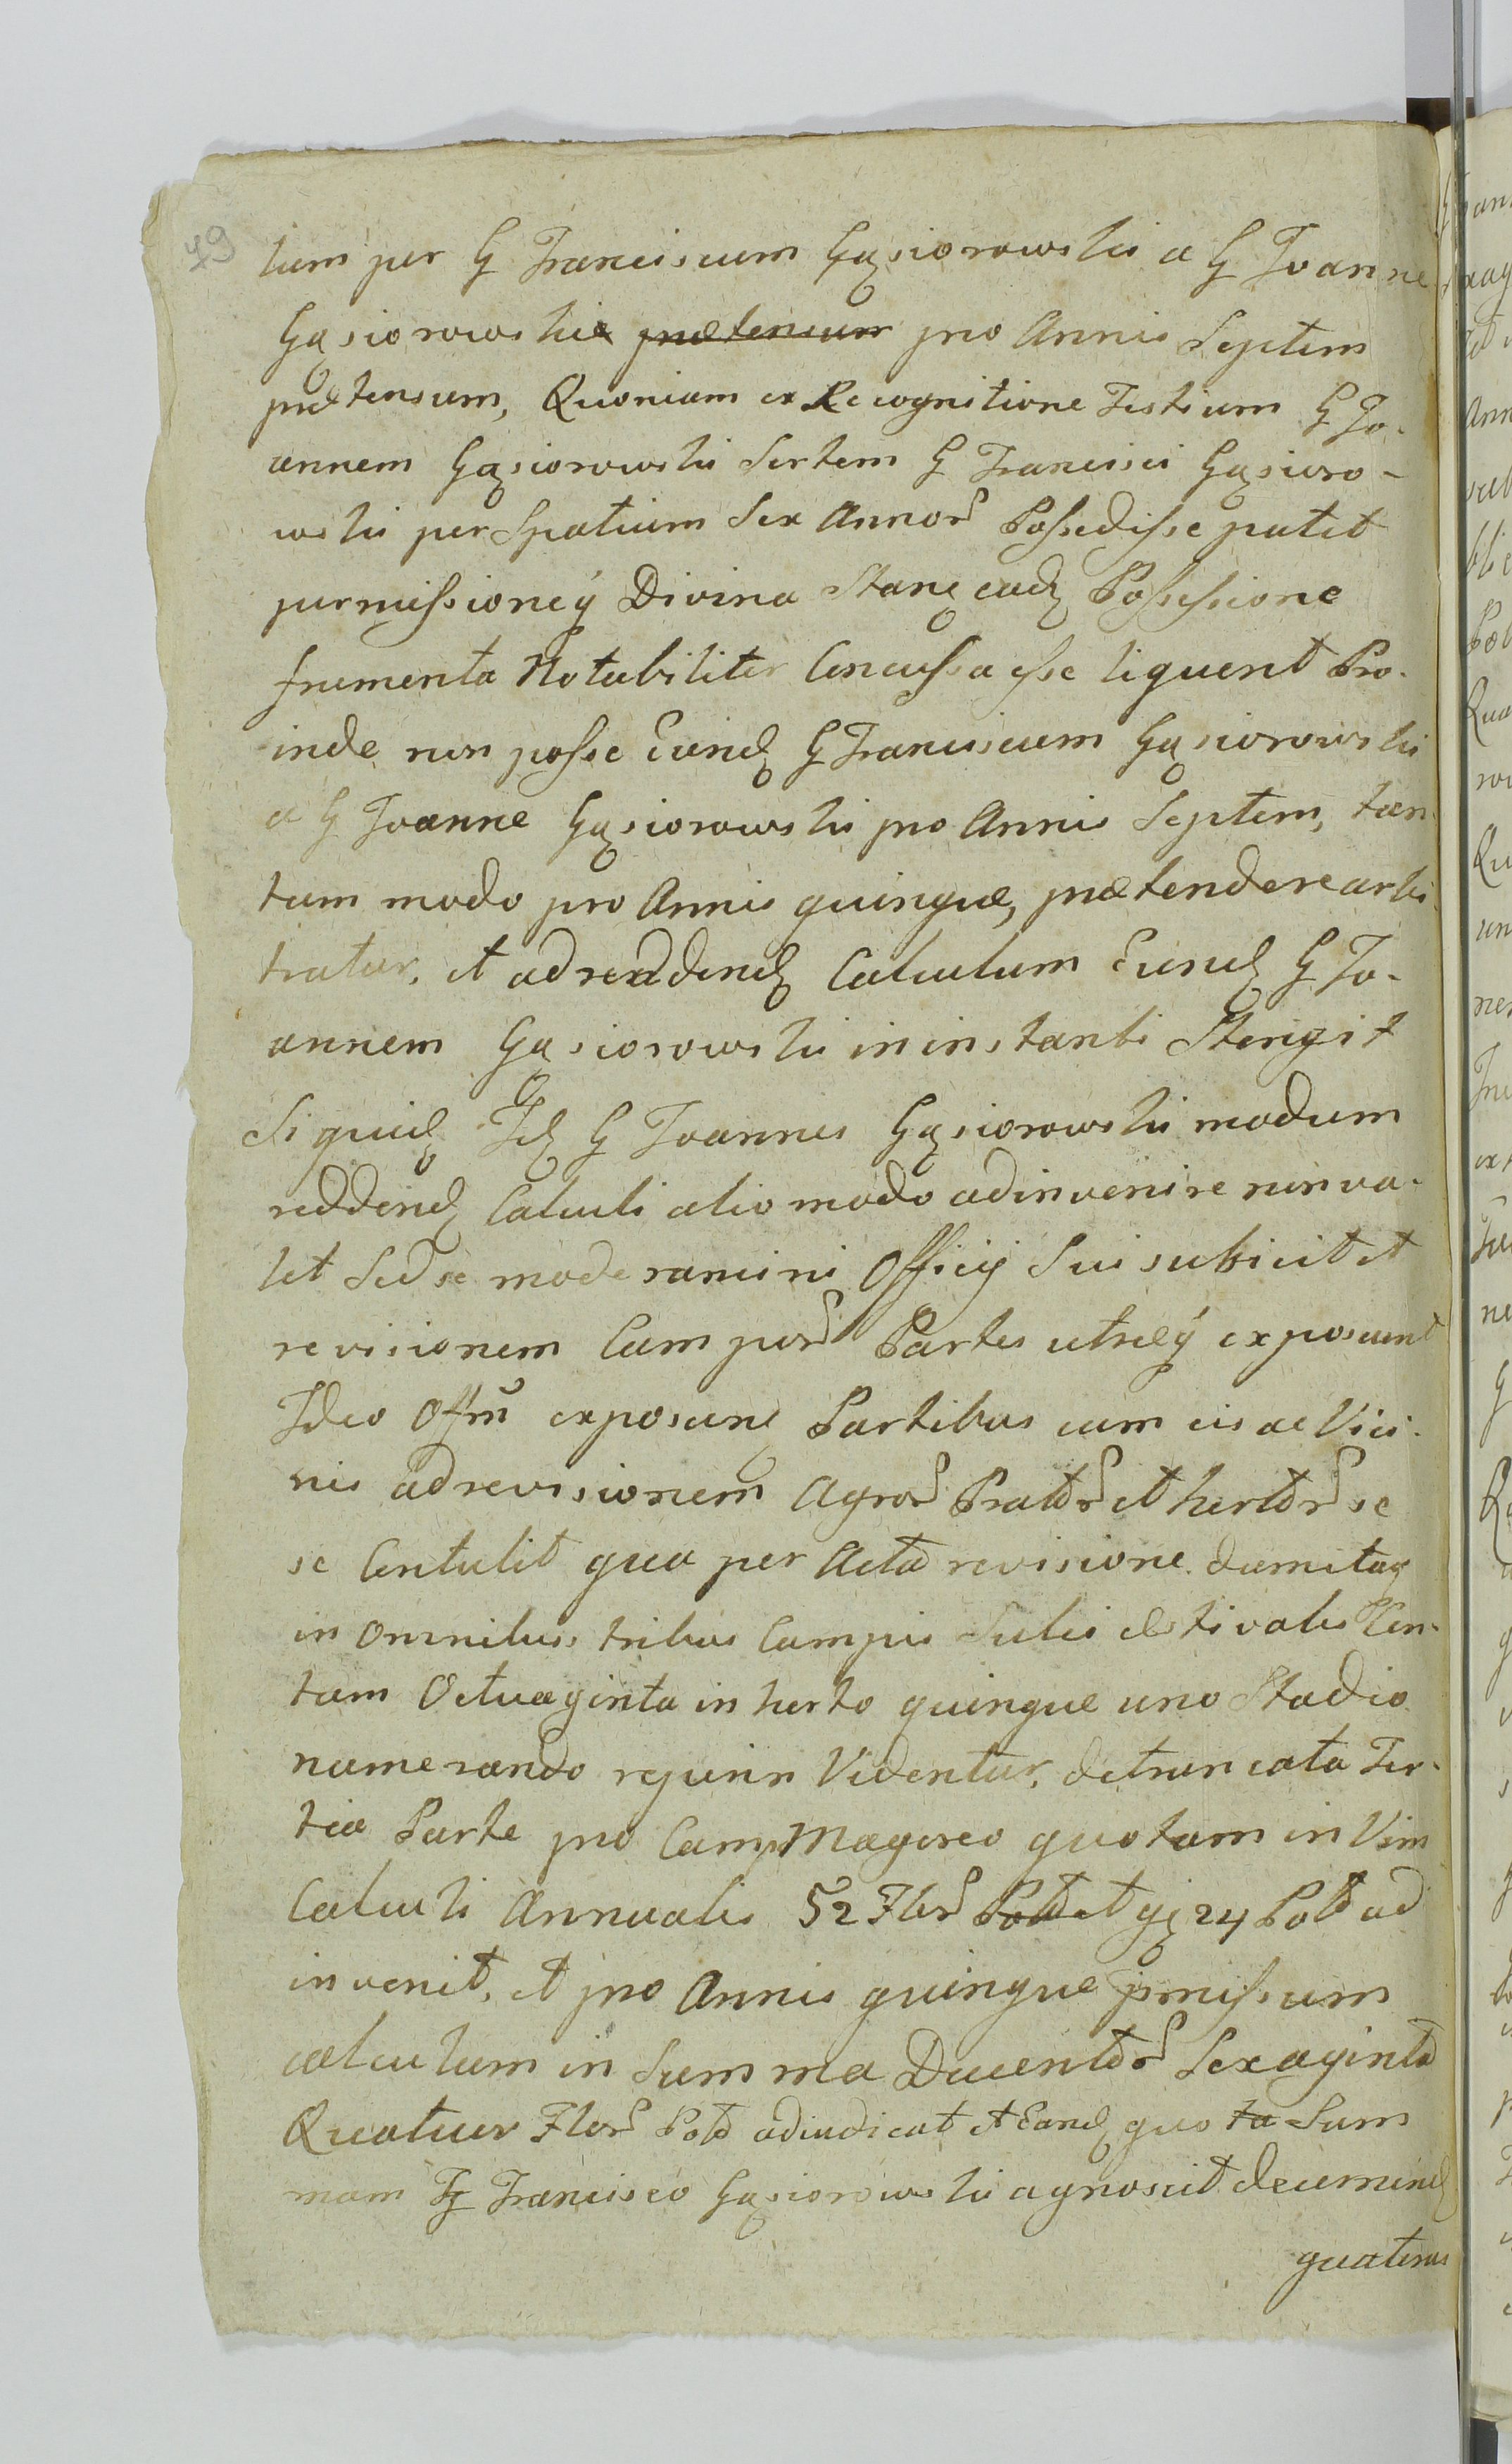 49
lum per G Franciscum Gąsiorowski a G Joanne
Gąsiorowskie prætensum pro Annis Septem
prætensum, Quoniam ex Recognitione Testium G Jo-
annem Gąsiorowski Sortem G Francisci Gąsioro-
wski per Spatium Sex Annor Possedisse patet
permissioneq Divina Stanę eadę Possessione
frumenta Notabiliter Concussa esse liquent Pro-
inde non posse Eundę G Franciscum Gąsiorowski
a G Joanne Gąsiorowski pro Annis Septem, tan
tum modo pro Annis quinque, prætendere arbi
tratur, et ad reddendę Calculum Eundę G Jo-
annem Gąsiorowski in instanti Stringit
Siquidę Idę G Joannes Gąsiorowski modum
reddendę Calculi alio modo adinvenire non va-
let Sed se moderamini Officij Sui subicit et
revisionem Campor Partes utræq exposcunt
Ideo Offm exposcunę Partibus cum eis ac Vici-
nis ad revisionem Agror Prator et hortor se
se Contulit qua per Acta revisione dum itaq
in omnibus tribus Campis Sulci æstivales Cen-
tum Octuaginta in horto quinque uno Stadio
numerando reperiri Videntur, detruncata Ter-
tia Parte pro Camp Magereo quotam in Vim
Calculi Annualis 52 Flor Pol et gę 24 Pol ad
invenit, et pro Annis quinque pmissum
calculum in Summa Ducentor Sexaginta
Quatuor Flor Pol adiudicat et Eandę quo ta Sum
mam G Francisco Gąsiorowski agnoscit decernendę
quatenus